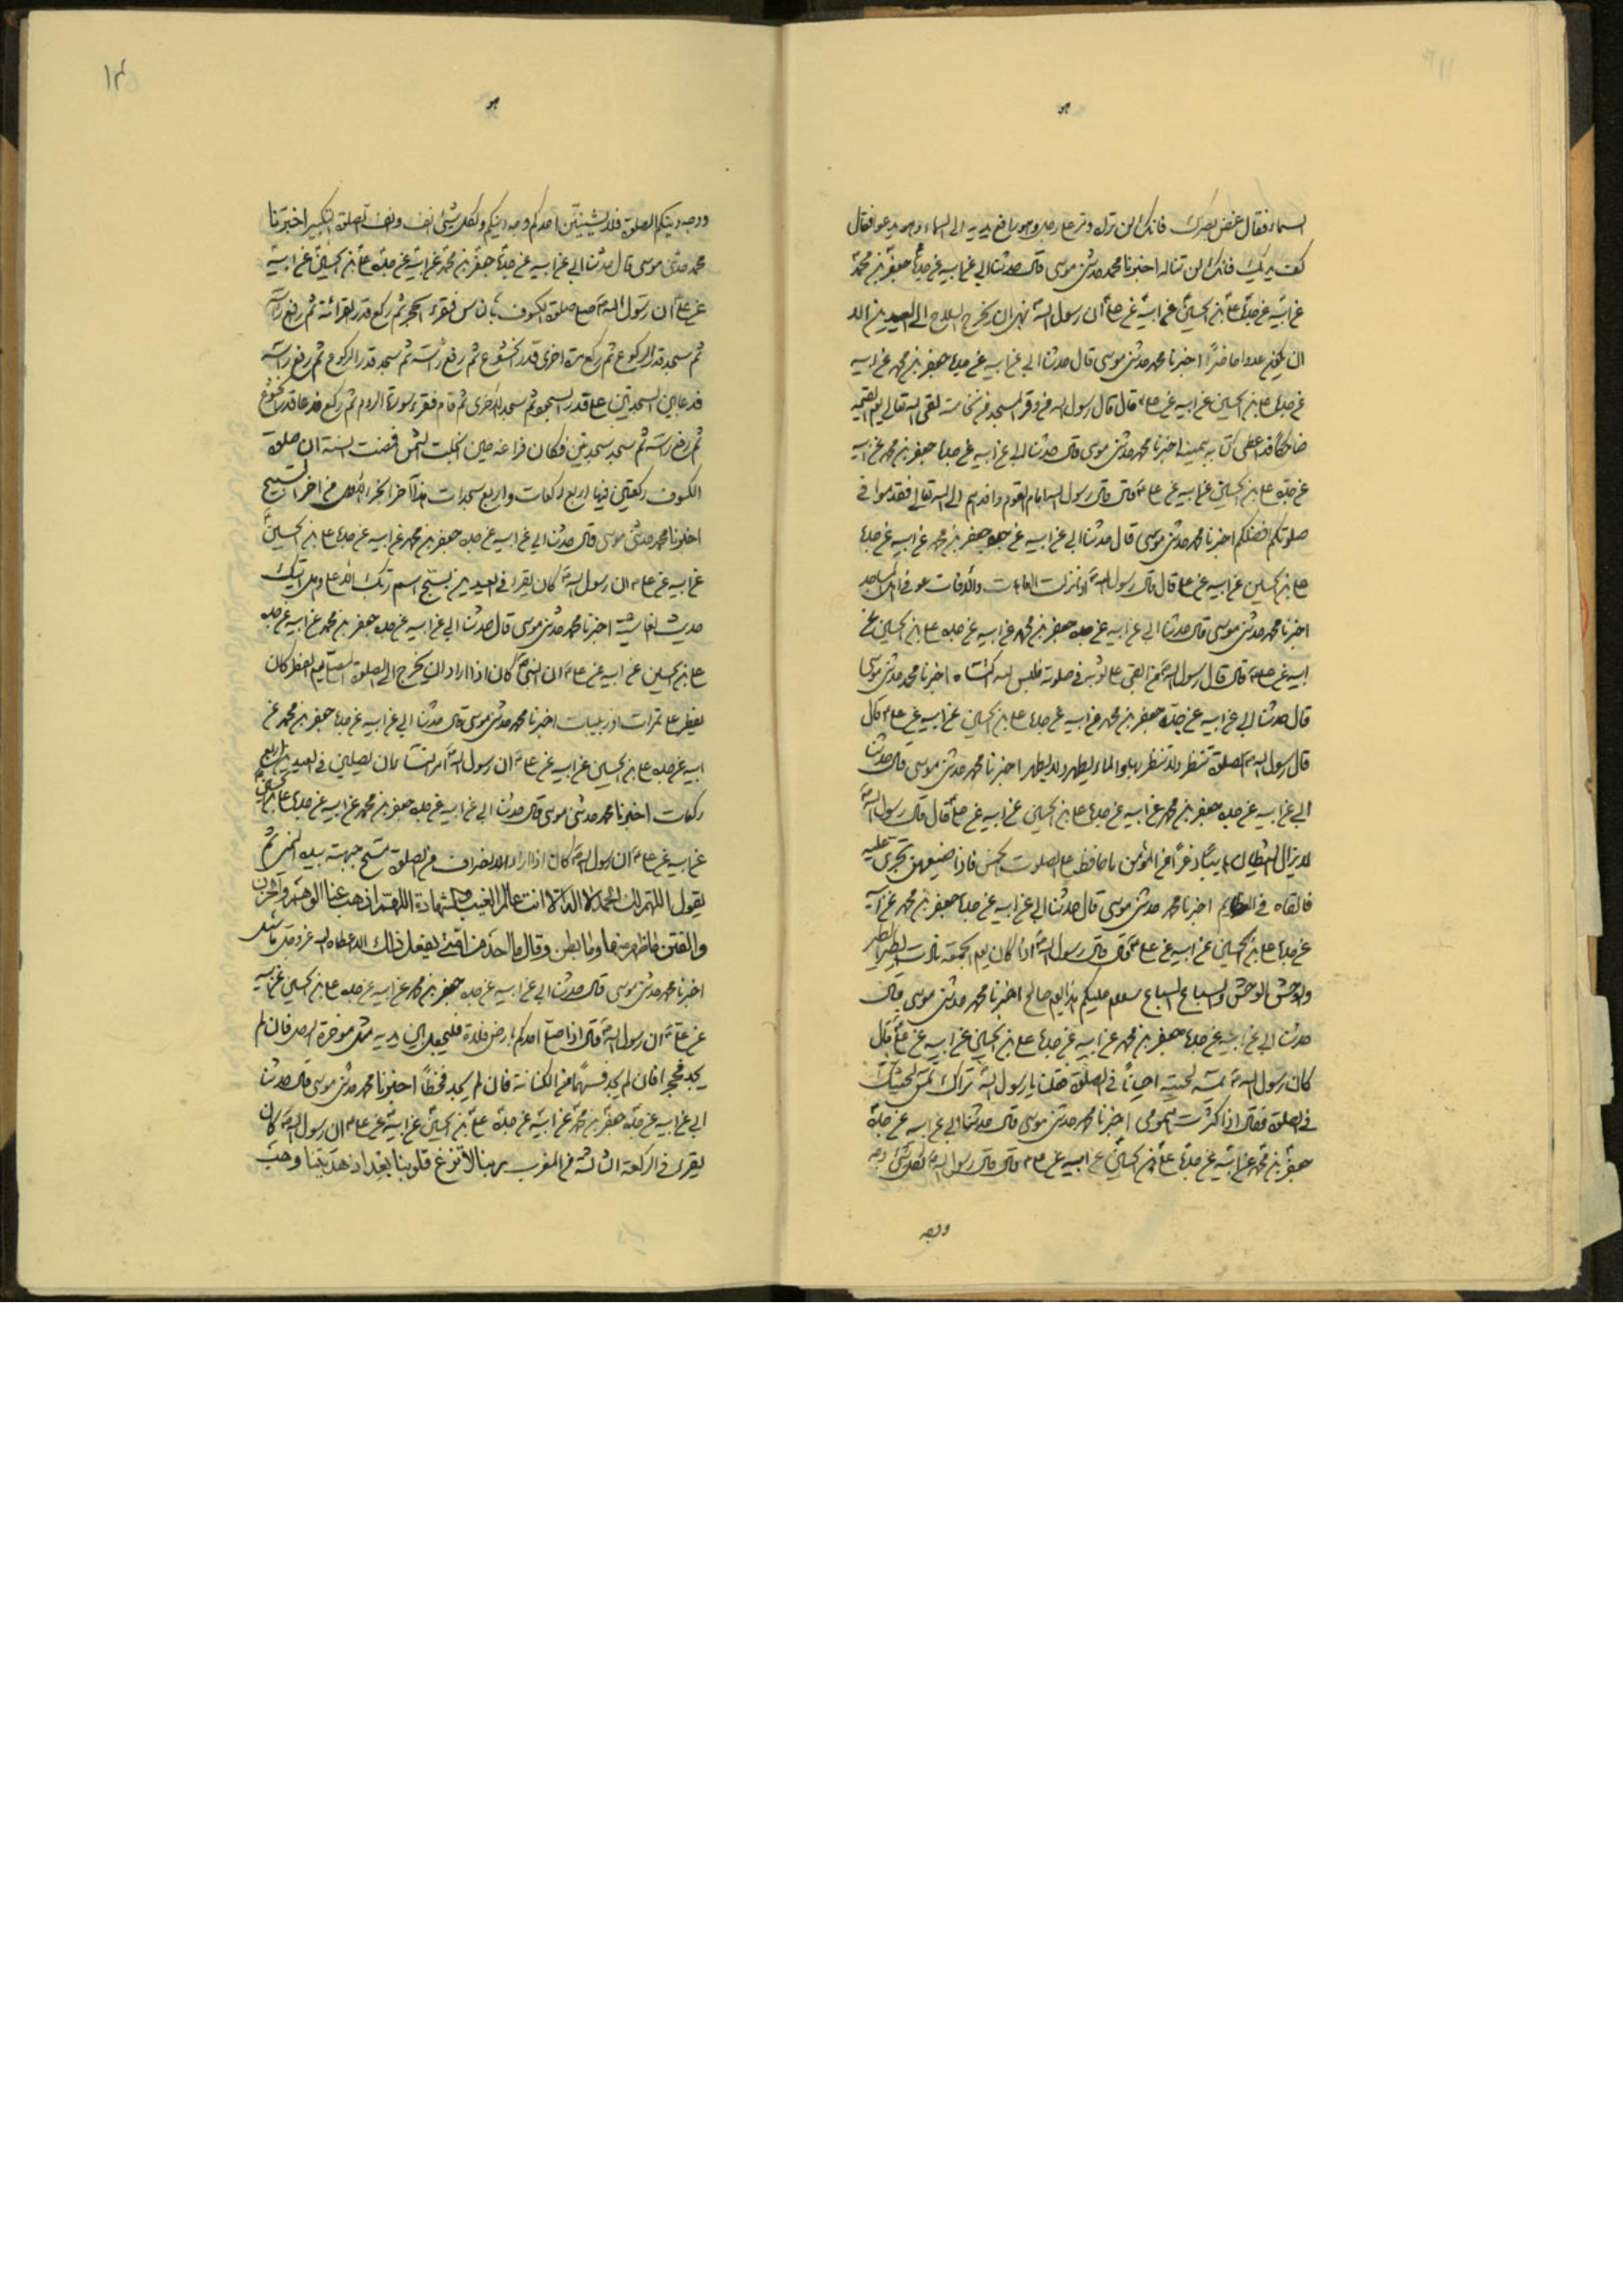 هو
السماء فقال غض بصرك فانك لن تراه ومر على رجل وهو رافع يديه الى السماء وهو يدعو فقال
كف يديك فانك لن تناله اخبرنا محمد حدثنى موسى قال حدثنا ابي عن ابيه عن جده جعفر بن محمد
عن ابيه عن جده على بن الحسين عن ابيه عن على ان رسول الله نهى ان يخرج السلاح الى العيدين الا
ان يكون عدوا حاضرا اخبرنا محمد حدثنى موسى قال حدثنا ابي عن ابيه عن جده جعفر بن محمد عن ابيه
عن جده على بن الحسين عن ابيه عن على قال قال رسول الله من وقر المسجد من نخامة لقى الله تعالى يوم القيمة
ضاحكا قد اعطى كتابه بيمينه اخبرنا محمد حدثنى موسى قال حدثنا ابي عن ابيه عن جده جعفر بن محمد عن ابيه
عن جده على بن الحسين عن ابيه عن على قال قال رسول الله امام القوم وافدهم الى الله تعالى فقدموا في
صلوتكم افضلكم اخبرنا محمد حدثنى موسى قال حدثنا ابي عن ابيه عن جده جعفر بن محمد عن ابيه عن جده
على بن الحسين عن ابيه عن على قال قال رسول الله اذا نزلت العاهات والافات عوفى اهل المساجد
اخبرنا محمد حدثنى موسى قال حدثنا ابي عن ابيه عن جده جعفر بن محمد عن ابيه عن جده على بن الحسين عن
ابيه عن على قال قال رسول الله من اتقى على ثوبه في صلوته فليس لله اكتساه اخبرنا محمد حدثنى موسى
قال حدثنا ابي عن ابيه عن جده جعفر بن محمد عن ابيه عن جده على بن الحسين عن ابيه عن على قال
قال رسول الله الصلوة تنتظر ولا تنتظر بها والماء يطهر ولا يطهر اخبرنا محمد حدثنى موسى قال حدثنا
ابي عن ابيه عن جده جعفر بن محمد عن ابيه عن جده على بن الحسين عن ابيه عن على قال قال رسول الله
لا يزال الشيطان ذعرا من المؤمن ما حافظ على الصلوت الخمس فاذا ضيعهن تجرى عليه
فالقاه في العظايم اخبرنا محمد حدثنى موسى قال حدثنا ابي عن ابيه عن جده جعفر بن محمد عن ابيه
عن جده على بن الحسين عن ابيه عن على قال قال رسول الله اذا كان يوم الجمعة نادت الطير الطير
والوحش الوحش والسباع السباع سلام عليكم هذا يوم صالح اخبرنا محمد حدثنى موسى قال
حدثنا ابي عن ابيه عن جده جعفر بن محمد عن ابيه عن جده على بن الحسين عن ابيه عن على قال
كان رسول الله يمس لحيته احيانا في الصلوة فقلنا يا رسول الله نراك تمس لحيتك
في الصلوة فقال اذا كثرت همومى اخبرنا محمد حدثنى موسى قال حدثنا ابي عن ابيه عن جده
جعفر بن محمد عن ابيه عن جده على بن الحسين عن ابيه عن على قال قال رسول الله لكل شئ وجه
ووجه
هو
ووجه دينكم الصلوة فلا يشينن احدكم وجه دينكم ولكل شئ انف وانف الصلوة التكبير اخبرنا
محمد حدثنى موسى قال حدثنا ابي عن ابيه عن جده جعفر بن محمد عن ابيه عن جده على بن الحسين عن ابيه
عن على ان رسول الله صلى صلوة الكسوف بالناس فقرء الحجر ثم ركع قدر القرائة ثم رفع راسه
ثم سجد قدر الركوع ثم ركع مرة اخرى قدر الخشوع ثم رفع راسه ثم سجد قدر الركوع ثم رفع راسه
فدعا بين السجدتين على قدر السجود ثم سجد الاخرى ثم قام فقرء سورة الروم ثم ركع فدعا قدر الخشوع
ثم رفع راسه ثم سجد سجدتين فكان فراغه حين انجلت الشمس فمضت السنة ان صلوة
الكسوف ركعتين فيها اربع ركعات واربع سجدات هذا آخر الجزء الاول من اجزاء الشيخ
اخبرنا محمد حدثنى موسى قال حدثنا ابي عن ابيه عن جده جعفر بن محمد عن ابيه عن جده على بن الحسين
عن ابيه عن على ان رسول الله كان يقرء في العيدين بسبح اسم ربك الاعلى وهل اتيك
حديث الغاشية اخبرنا محمد حدثنى موسى قال حدثنا ابي عن ابيه عن جده جعفر بن محمد عن ابيه عن جده
على بن الحسين عن ابيه عن على ان النبى كان اذا اراد ان يخرج الى الصلوة يوم الفطر كان
يفطر على تمرات او زبيبات اخبرنا محمد حدثنى موسى قال حدثنا ابي عن ابيه عن جده جعفر بن محمد عن
ابيه عن جده على بن الحسين عن ابيه عن على ان رسول الله امر النساء ان يصلين في العيدين اربع
ركعات اخبرنا محمد حدثنى موسى قال حدثنا ابي عن ابيه عن جده جعفر بن محمد عن ابيه عن جده على بن الحسين
عن ابيه عن على ان رسول الله كان اذا اراد الانصراف من الصلوة مسح جبهته بيده اليمنى ثم
يقول اللهم لك الحمد لا اله الا انت عالم الغيب والشهادة اللهم اذهب عنا الهم والحزن
والفتن ما ظهر منها وما بطن وقال ما احد من امتى يفعل ذلك الا اعطاه الله عز وجل ما سئل
اخبرنا محمد حدثنى موسى قال حدثنا ابي عن ابيه عن جده جعفر بن محمد عن ابيه عن جده على بن الحسين عن ابيه
عن على ان رسول الله قال اذا صلى احدكم بارض فلاة فليجعل بين يديه مثل موخرة الرحل فان لم
يجد فحجرا فان لم يجد فسهما من الكنانة فان لم يجد فخطا اخبرنا محمد حدثنى موسى قال حدثنا
ابي عن ابيه عن جده جعفر بن محمد عن ابيه عن جده على بن الحسين عن ابيه عن على ان رسول الله كان
يقرء في الركعة الثالثة من المغرب ربنا لا تزغ قلوبنا بعد اذ هديتنا وهب